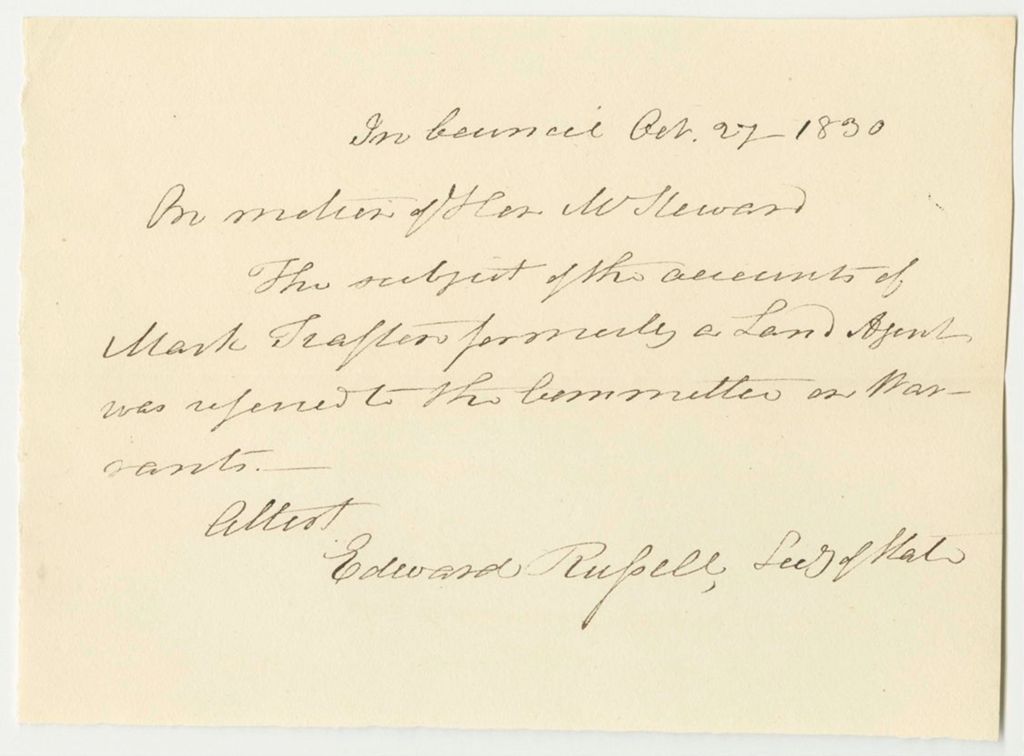 In Council Oct. 27 1830
On motion of Hon Mr Steward
The subject of the accounts of
Mark Trafton formerly a Land Agent
was referred to the Committee on War-
rants. —
Attest
Edward Russell, Secy of State